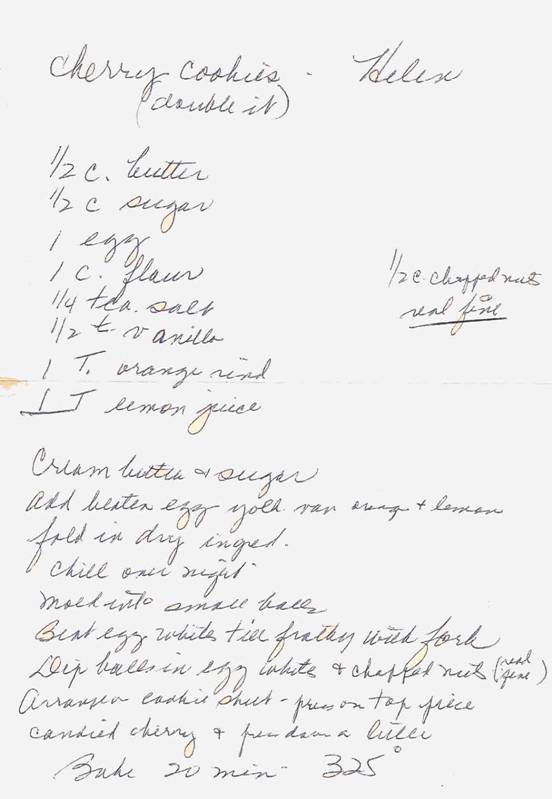 Cherry Cookies - Helen
(double it)
1/2 c. butter
1/2 c sugar
1 egg
1 c. flour
1/4 tea. salt
1/2 t. vanilla
1 T. orange rind
1 T lemon juice
1/2 c. chopped nuts
real fine
Cream butter & sugar
add beaten egg yolk van orange + lemon
fold in dry ingred.
Chill over night
Mold into small balls
Beat egg whites till frothy with fork
Dip balls in egg white & chopped nuts (real fine)
Arrange on cookie sheet - press on top piece
candied cherry & press down a little
Bake 20 min - 325°